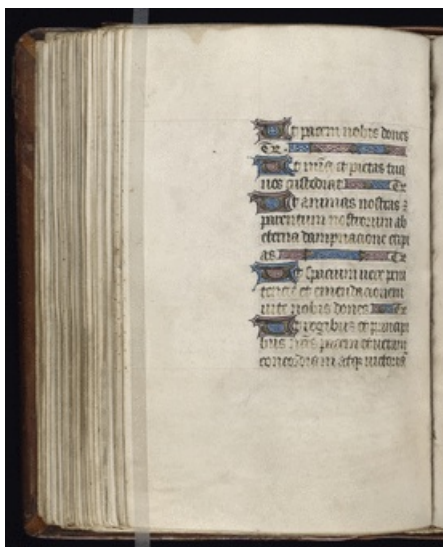 Et pacem nobis dones
Te.
Et mia et pietas tua
nos custodiat Te
Et animas nostras &
parentum nostrorum ab
eterna dampnacione eripi
as Te
Et spacium vere peni
tencie et emendacionem
vite nobis dones Te
Et regibus et principi
bus nris pacem et veram
concordiam atque victoria